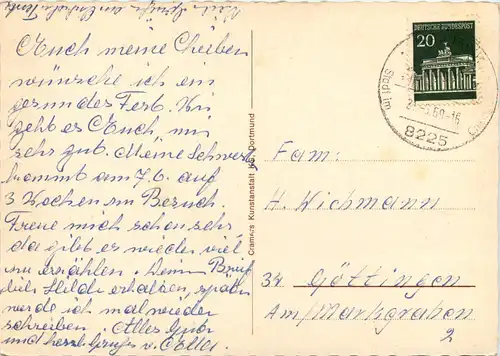 Euch meine Lieben
wünsche ich ein
gesundes Fest. Wie
geht es Euch, mir
sehr gut. Meine Schwest.
kommt am 7.6. auf
3 Wochen im Besuch.
Freue mich schon sehr
da gibt es wieder viel
zu erzählen. Deinen Brief
liebe Hilde erhalten, später
werde ich mal wieder
schreiben. Alles Gute
und herzl. Grüße v.
Cramers Kunstanstalt KG, Dortmund
DEUTSCHE BUNDESPOST
20
Stadt im
69-16
8225
Fam.
H. Wichmann
34 Göttingen
Am/Markgraben
2